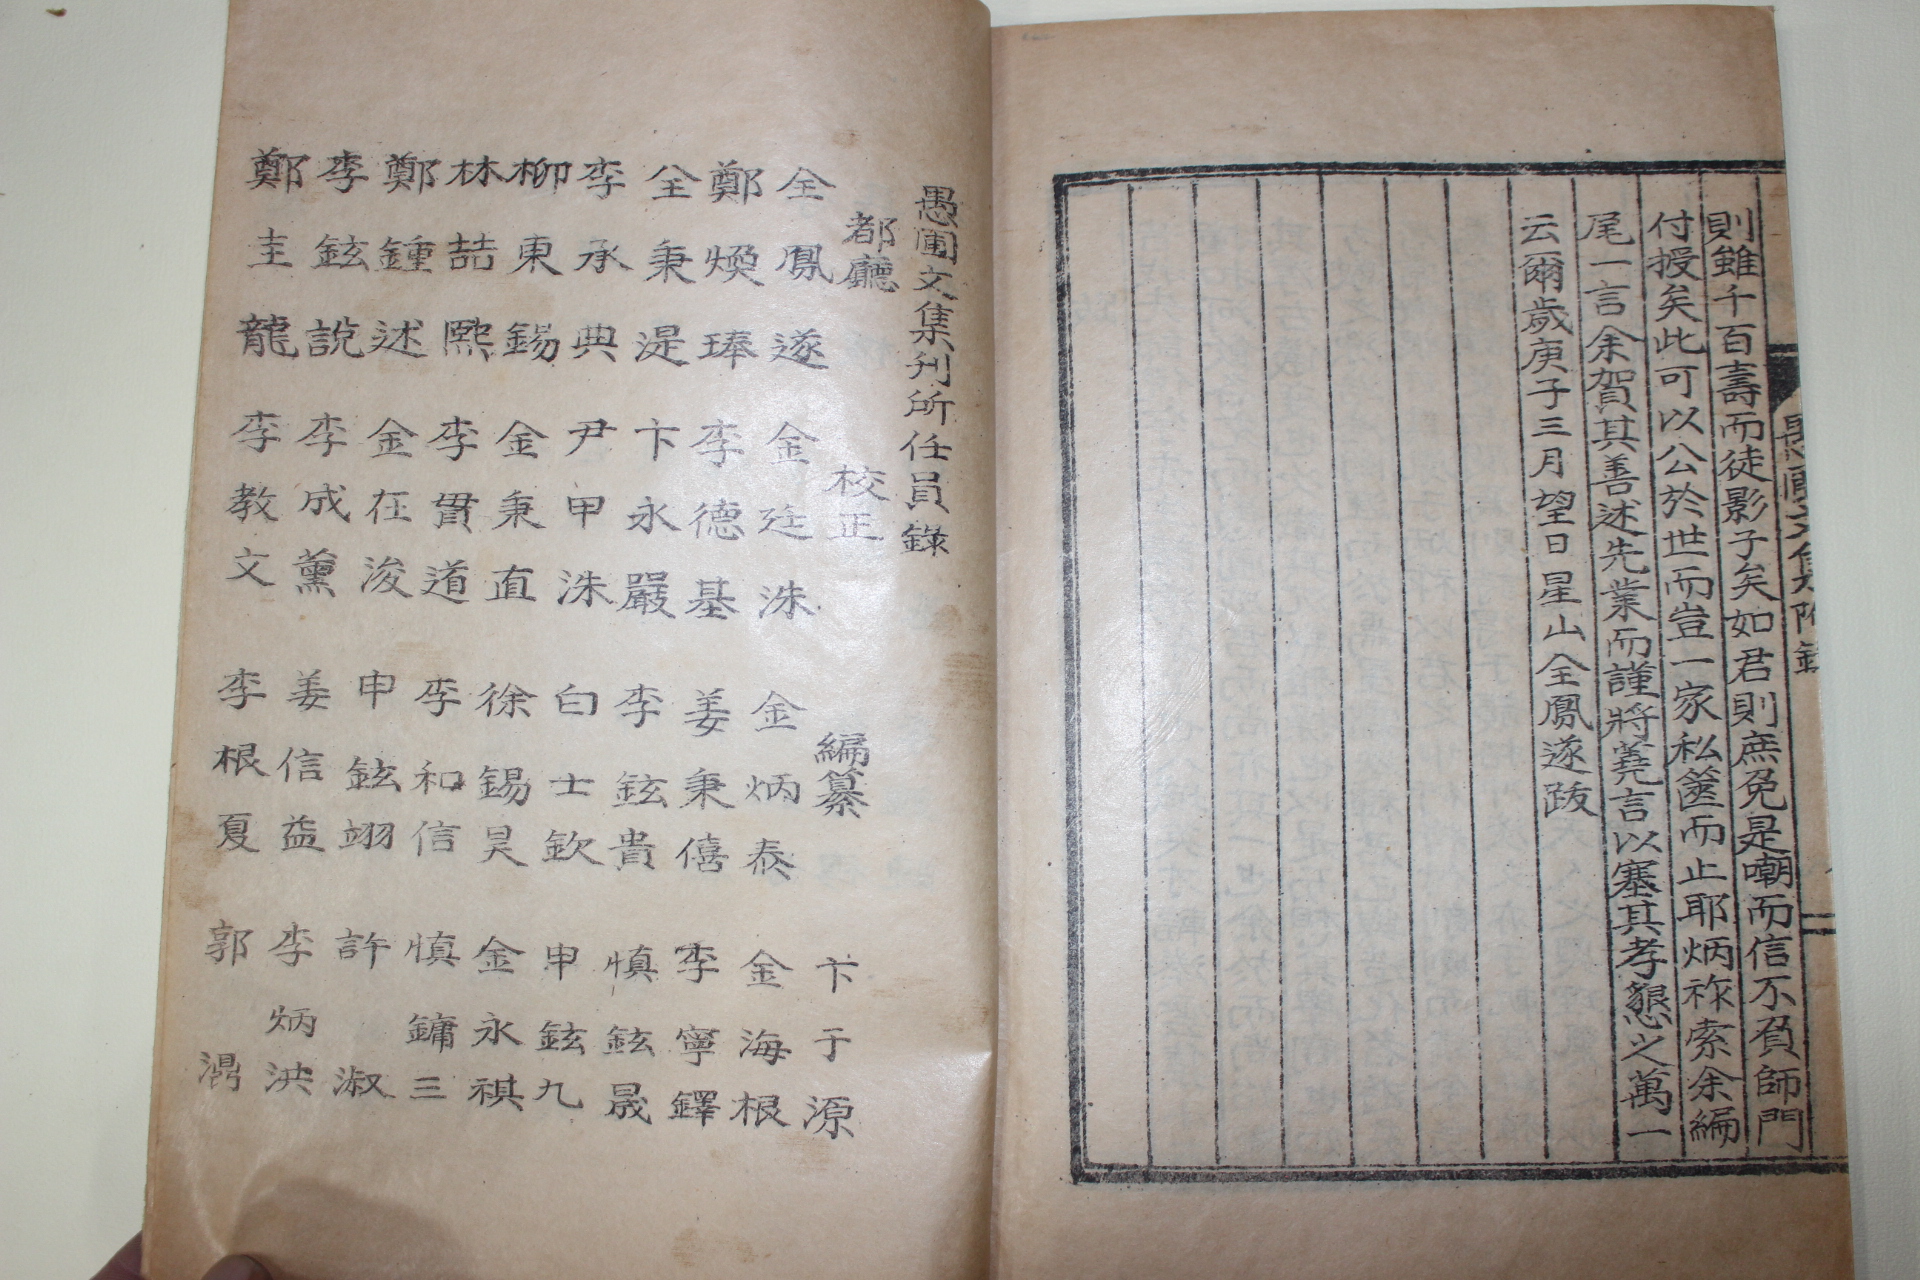 則雖千百壽而徒影子矣如君則庶免是嘲而信不負師門
付授矣此可以公於世而豈一家私篋而止耶炳祚索余編
尾一言余賀其善述先業而謹將蕘言以塞其孝懇之萬一
云爾歲庚子三月望日星山全鳳遂跋
愚圃文集附錄
愚圃文集刊所任員錄
都廳 校正 編纂 卞于源
全鳳遂 金廷洙 金炳泰 金海根
鄭煥琫 李德基 姜秉僖 李寧鐸
全秉湜 卞永嚴 李鉉貴 愼鉉晟
李承典 尹甲洙 白士欽 申鉉九
柳東錫 金秉直 徐錫昊 金永祺
林喆熙 李貫道 李和信 愼鏞三
鄭鍾述 金在浚 申鉉翊 許淑
李鉉說 李成薰 姜信益 李炳洪
鄭圭龍 李教文 李根夏 郭